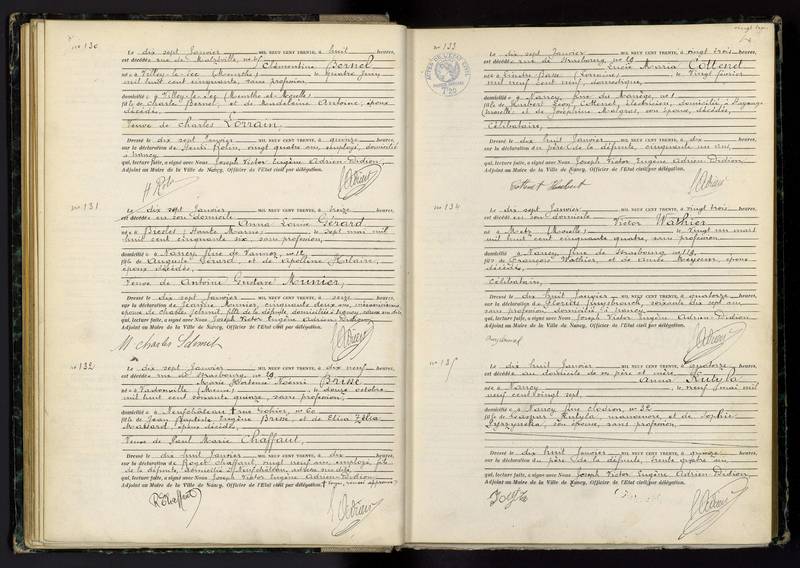 n° 130
Le dix sept Janvier MIL NEUF CENT TRENTE, à huit heures,
est décédée rue de Malzéville, n°
Clémentine Bernel
née à Villey-le-Sec (Meurthe) le quatre Juin
mil huit cent cinquante, sans profession
domiciliée à Villey-le-Sec (Meurthe et Moselle)
fille de Charles Bernel, et de Madeleine Antoine, époux
décédés.
Veuve de Charles Lorrain,
Dressé le dix sept Janvier MIL NEUF CENT TRENTE, à quinze heures,
sur la déclaration de Henri Rohn, vingt quatre ans, employé, domicilié
à Nancy
qui, lecture faite, a signé avec Nous Joseph Victor Eugène Adrien Didion,
Adjoint au Maire de la Ville de Nancy, Officier de l'Etat civil par délégation.
n° 131
Le dix sept Janvier MIL NEUF CENT TRENTE, à treize heures,
est décédée en son domicile
Anna Louise Gérard
née à Biesles (Haute Marne) le sept mai mil
huit cent cinquante six, sans profession
domiciliée à Nancy, rue de Vannoz, n° 12
fille de Auguste Gérard, et de Apolline Hilaire,
époux décédés.
Veuve de Antoine Gustave Mounier,
Dressé le dix sept Janvier MIL NEUF CENT TRENTE, à seize heures,
sur la déclaration de Jeanne Mounier, cinquante deux ans,
épouse de Charles
qui, lecture faite, a signé avec Nous Joseph Victor Eugène Adrien Didion,
Adjoint au Maire de la Ville de Nancy, Officier de l'Etat civil par délégation.
n° 132
Le dix sept Janvier MIL NEUF CENT TRENTE, à dix neuf heures,
est décédée rue de Strasbourg, n° 29
Marie Hortense Noémi Brisse
née à Vadonville (Meuse) le douze octobre
mil huit cent soixante quinze, sans profession
domiciliée à Neufchâteau + rue Gohier, n° 60
fille de Jean Baptiste Eugène Brisse et de Elisa Zélia
Massard, époux décédés.
Veuve de Paul Marie Chaffaut,
Dressé le dix huit Janvier MIL NEUF CENT TRENTE, à dix heures,
sur la déclaration de Roger Chaffaut, vingt neuf ans, employé, fils
de la défunte, domicilié à Neufchâteau,
qui, lecture faite, a signé avec Nous Joseph Victor Eugène Adrien Didion,
Adjoint au Maire de la Ville de Nancy, Officier de l'Etat civil par délégation.
R Chaffaut
n° 133
Le dix sept Janvier MIL NEUF CENT TRENTE, à vingt trois heures,
est décédée rue de Strasbourg, n° 29
Lucie Maria Collenet
(Lorraine) le vingt février
mil neuf cent neuf, domestique,
domiciliée à Nancy, rue du Manège, n° 1
fille de Hubert Léon Collenet, électricien, domicilié à Hayange
(Moselle) et de Joséphine Malgras, son épouse, décédée,
Célibataire,
Dressé le dix huit Janvier MIL NEUF CENT TRENTE, à heures,
sur la déclaration du père de la défunte, cinquante un ans,
qui, lecture faite, a signé avec Nous Joseph Victor Eugène Adrien Didion,
Adjoint au Maire de la Ville de Nancy, Officier de l'Etat civil par délégation.
n° 134
Le dix sept Janvier MIL NEUF CENT TRENTE, à vingt trois heures,
est décédé en son domicile
Victor Wathier
né à Metz (Moselle) le vingt un mars
mil huit cent cinquante quatre, sans profession
domicilié à Nancy, rue de Strasbourg, n° 118
fils de François Wathier, et de époux
décédés.
Célibataire,
Dressé le dix huit Janvier MIL NEUF CENT TRENTE, à quatorze heures,
sur la déclaration de soixante dix sept ans
sans profession domicilié à Nancy
qui, lecture faite, a signé avec Nous Joseph Victor Eugène Adrien Didion,
Adjoint au Maire de la Ville de Nancy, Officier de l'Etat civil par délégation.
n° 135
Le dix huit Janvier MIL NEUF CENT TRENTE, à quatorze heures,
est décédée au domicile de ses père et mère
Anna Kutyla
née à Nancy le neuf mai mil
neuf cent vingt sept,
domiciliée à Nancy, rue Clodion, n° 32
fille de Gaspar Kutyla, manœuvre, et de Sophie
son épouse, sans profession
Dressé le dix huit Janvier MIL NEUF CENT TRENTE, à quinze heures,
sur la déclaration du père de la défunte, trente quatre ans
qui, lecture faite, a signé avec Nous Joseph Victor Eugène Adrien Didion
Adjoint au Maire de la Ville de Nancy, Officier de l'Etat civil par délégation.